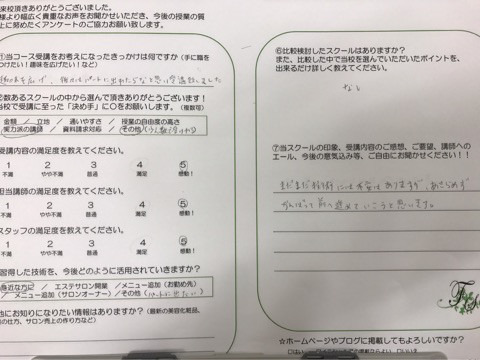 来校頂きありがとうございました。
様より幅広く貴重なお声をお聞かせいただき、今後の授業の質
上に努めたくアンケートのご協力お願い致します。
①当コース受講をお考えになったきっかけは何ですか（手に職を
つけたい！趣味を広げたい！など）
②数あるスクールの中から選んで頂きありがとうございます！
当校で受講に至った「決め手」に○をお願いします。（複数可）
金額 / 立地 / 通いやすさ / 授業の自由度の高さ
実力派の講師 / 資料請求対応 / その他（
受講内容の満足度を教えてください。
1 2 3 4 5
不満 やや不満 普通 満足 感動！
担当講師の満足度を教えてください。
1 2 3 4 5
不満 やや不満 普通 満足 感動！
スタッフの満足度を教えてください。
1 2 3 4 5
不満 やや不満 普通 満足 感動！
習得した技術を、今後どのように活用されていきますか？
身近な方に / エステサロン開業 / メニュー追加（お勤め先）
/ メニュー追加（サロンオーナー） / その他（パートに出たい）
他にお知りになりたい情報はありますか？（最新の美容化粧品、
の仕方、サロン売上の作り方など）
⑥比較検討したスクールはありますか？
また、比較した中で当校を選んでいただいたポイントを、
出来るだけ詳しく教えてください。
なし
⑦当スクールの印象、受講内容のご感想、ご要望、講師への
エール、今後の意気込み等、ご自由にお聞かせください！！
まだまだ技術には不安はありますが、あきらめず
がんばって前へ進めていこうと思います。
☆ホームページやブログに掲載してもよろしいですか？